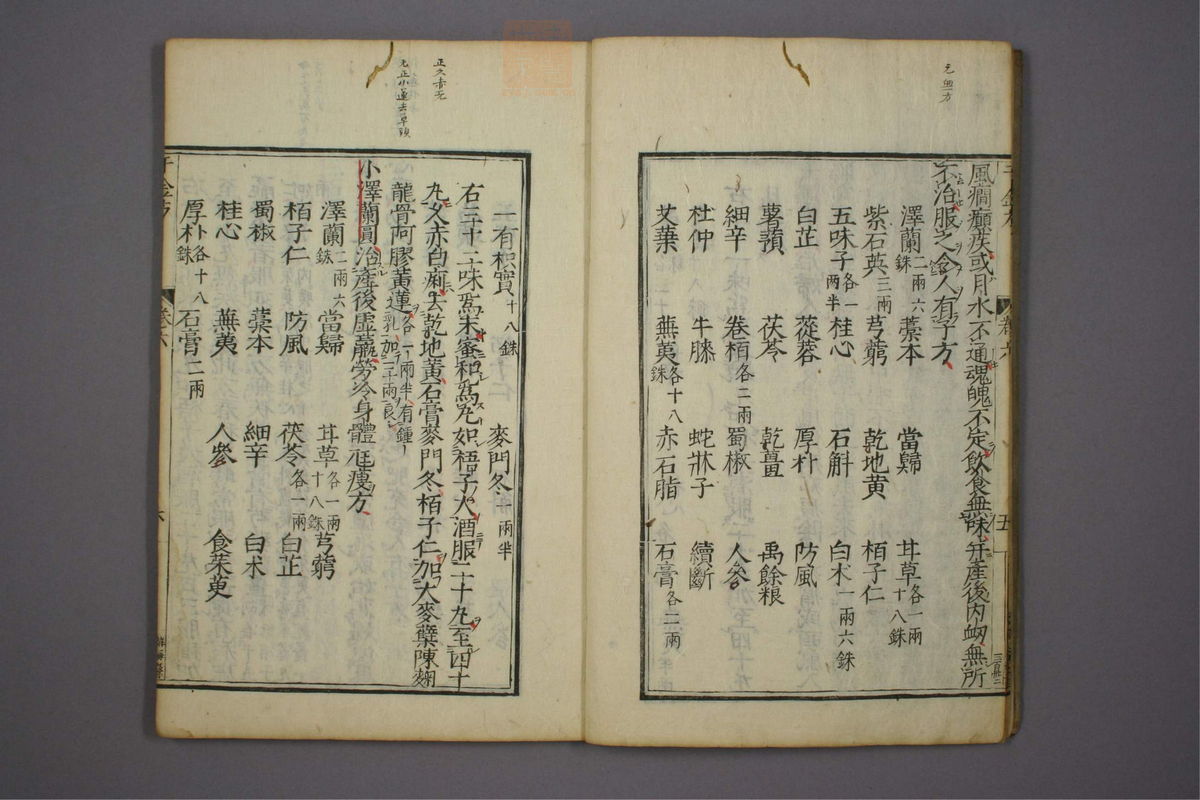 元無方
風癇癲疾或月水不通魂魄不定飲食無味并產後内衂無所
不治服之令人有子方
澤蘭二兩六銖 藁本 當歸 甘草各一兩十八銖
紫石英三兩 芎藭 乾地黄 栢子仁
五味子各一兩半 桂心 石斛 白朮一兩六銖
白芷 蓯蓉 厚朴 防風
薯蕷 茯苓 乾薑 禹餘粮
細辛 卷栢各二兩 蜀椒 人參
杜仲 牛膝 蛇牀子 續斷
艾葉 蕪荑各十八銖 赤石脂 石膏各二兩
正久赤无
一有枳實十八銖 麥門冬一兩半
右三十二味爲末蜜和爲丸如梧子大酒服二十丸至四十
丸久赤白痢去乾地黄石膏麥門冬栢子仁加大麥糵陳麴
龍骨阿膠黄連各一兩半有鍾乳加三兩良
小澤蘭圓治產後虛羸勞冷身體尫瘦方
澤蘭二兩六銖 當歸 甘草各一兩十八銖 芎藭
栢子仁 防風 茯苓各一兩 白芷
蜀椒 藁本 細辛 白朮
桂心 蕪荑 人參 食茱萸
厚朴各十八銖 石膏二兩
千金方 卷六 六